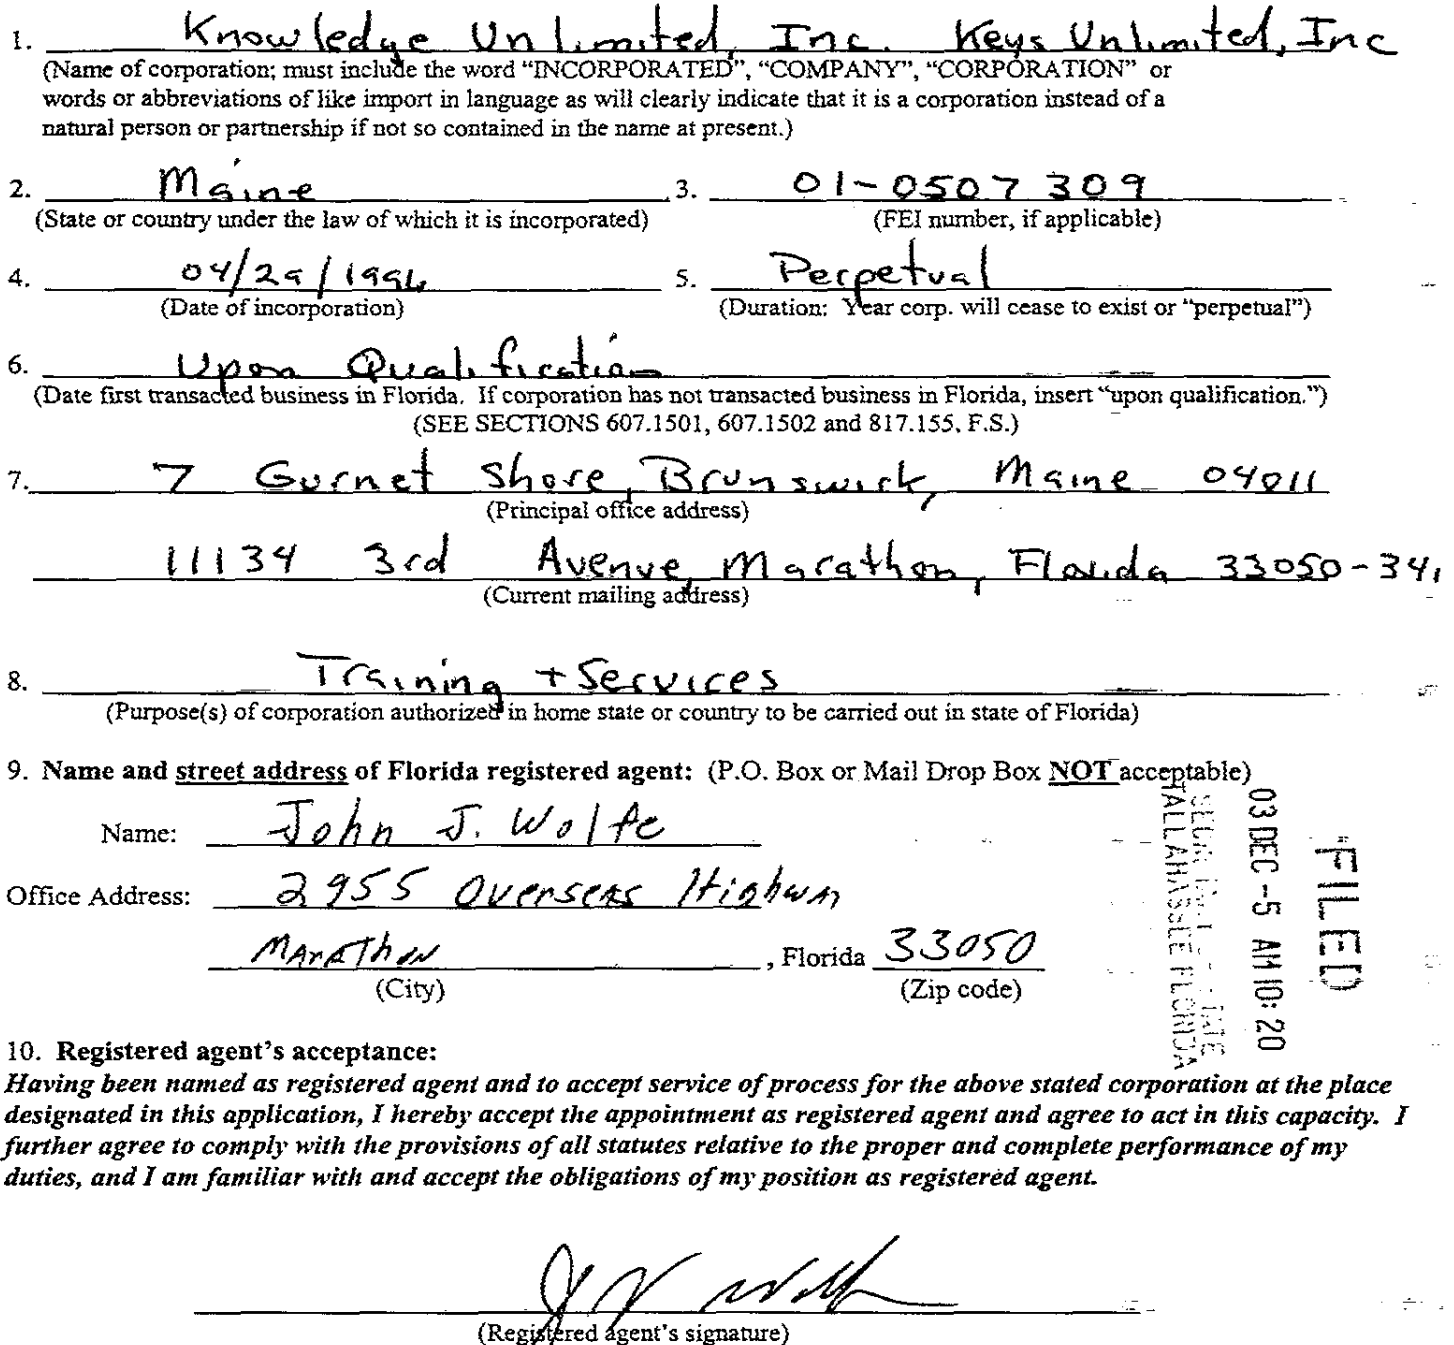 1. Knowledge Unlimited, Inc. Keys Unlimited, Inc
(Name of corporation; must include the word “INCORPORATED”, “COMPANY”, “CORPORATION” or
words or abbreviations of like import in language as will clearly indicate that it is a corporation instead of a
natural person or partnership if not so contained in the name at present.)
2. Maine 3. 01-0507309
(State or country under the law of which it is incorporated) (FEI number, if applicable)
4. 04/29/1996 5. Perpetual
(Date of incorporation) (Duration: Year corp. will cease to exist or “perpetual”)
6. Upon Qualification
(Date first transacted business in Florida. If corporation has not transacted business in Florida, insert “upon qualification.”)
(SEE SECTIONS 607.1501, 607.1502 and 817.155, F.S.)
7. 7 Gurnet Shore, Brunswick, Maine 04011
(Principal office address)
11134 3rd Avenue, Marathon, Florida 33050-34
(Current mailing address)
8. Training + Services
(Purpose(s) of corporation authorized in home state or country to be carried out in state of Florida)
9. Name and street address of Florida registered agent: (P.O. Box or Mail Drop Box NOT acceptable)
Name: John J. Wolfe
Office Address: 2955 Overseas Highway
Marathon, Florida 33050
(City) (Zip code)
FILED
03 DEC -5 AM 10:20
TALLAHASSEE FLORIDA
10. Registered agent’s acceptance:
Having been named as registered agent and to accept service of process for the above stated corporation at the place
designated in this application, I hereby accept the appointment as registered agent and agree to act in this capacity. I
further agree to comply with the provisions of all statutes relative to the proper and complete performance of my
duties, and I am familiar with and accept the obligations of my position as registered agent.
(Registered agent’s signature)